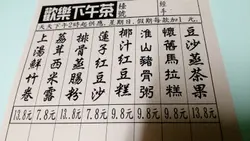 歡樂下午茶
檯號
經手
天天下午2時起供應,星期日,假期每款加1元
豆沙果 13.8元
懷舊馬拉糕 9.8元
淮山豬骨粥 9.8元
椰汁紅豆糕 9.8元
蓮子紅豆沙 7.8元
13.8元
西米露 7.8元
上湯鮮竹卷 13.8元